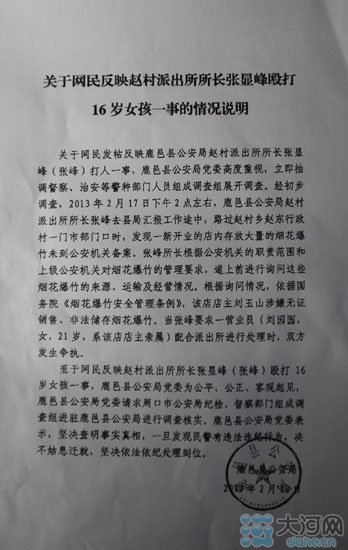 关于网民反映赵村派出所所长张显峰殴打
16岁女孩一事的情况说明
关于网民发帖反映鹿邑县公安局赵村派出所所长张显
峰（张峰）打人一事，鹿邑县公安局党委高度重视，立即抽
调督察、治安等警种部门人员组成调查组展开调查。经初步
调查，2013年2月17日下午2点左右，鹿邑县公安局赵村
派出所所长张显峰去县局汇报工作途中，路过赵村乡赵东行政
村一门市部门口时，发现一新开业的店内存放大量的烟花爆
竹未到公安机关备案。张所长根据公安机关的职责范围和
上级公安机关对烟花爆竹的管理要求，遂上前进行询问这些
烟花爆竹的来源、运输及经营情况。根据询问情况，依据国
务院《烟花爆竹安全管理条例》，该店店主刘玉山涉嫌无证
销售、非法储存烟花爆竹。当张峰要求一营业员（刘园园，
女，21岁，系该店店主亲属）配合派出所进行处理时，双方
发生争执。
至于网民反映赵村派出所所长张显峰（张峰）殴打16
岁女孩一事，鹿邑县公安局党委为公平、公正、客观起见，
鹿邑县公安局党委请求周口市公安局纪检、督察部门组成调
查组进驻鹿邑县公安局进行调查核实。鹿邑县公安局党委表
示，坚决查明事实真相，一旦发现民警有违法违纪行为，决
不姑息迁就，坚决依法依纪处理到位。
鹿邑县公安局
2013年2月19日
大河网
dahe.cn